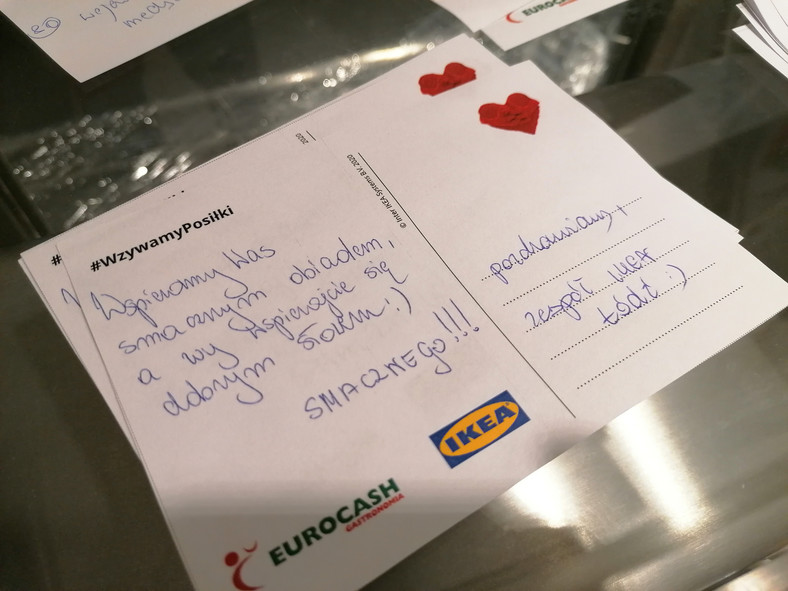 #WzywamyPosiłki
Wspieramy Was
smacznym obiadem,
a wy wspierajcie się
dobrym słowem :)
SMACZNEGO!!!
2020
© Inter IKEA Systems B.V. 2020
pozdrawiamy
zespół IKEA
Łódź :)
IKEA
EUROCASH
GASTRONOMIA
#
EUROC